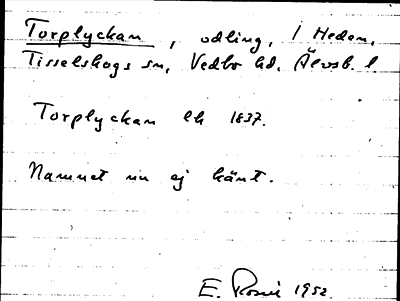 Torplyckan, odling, 1 Heden,
Tisselskogs sn, Vedbo hd. Älvsb. l.
Torplyckan lk 1837.
Namnet nu ej känt.
E. Rosell 1952